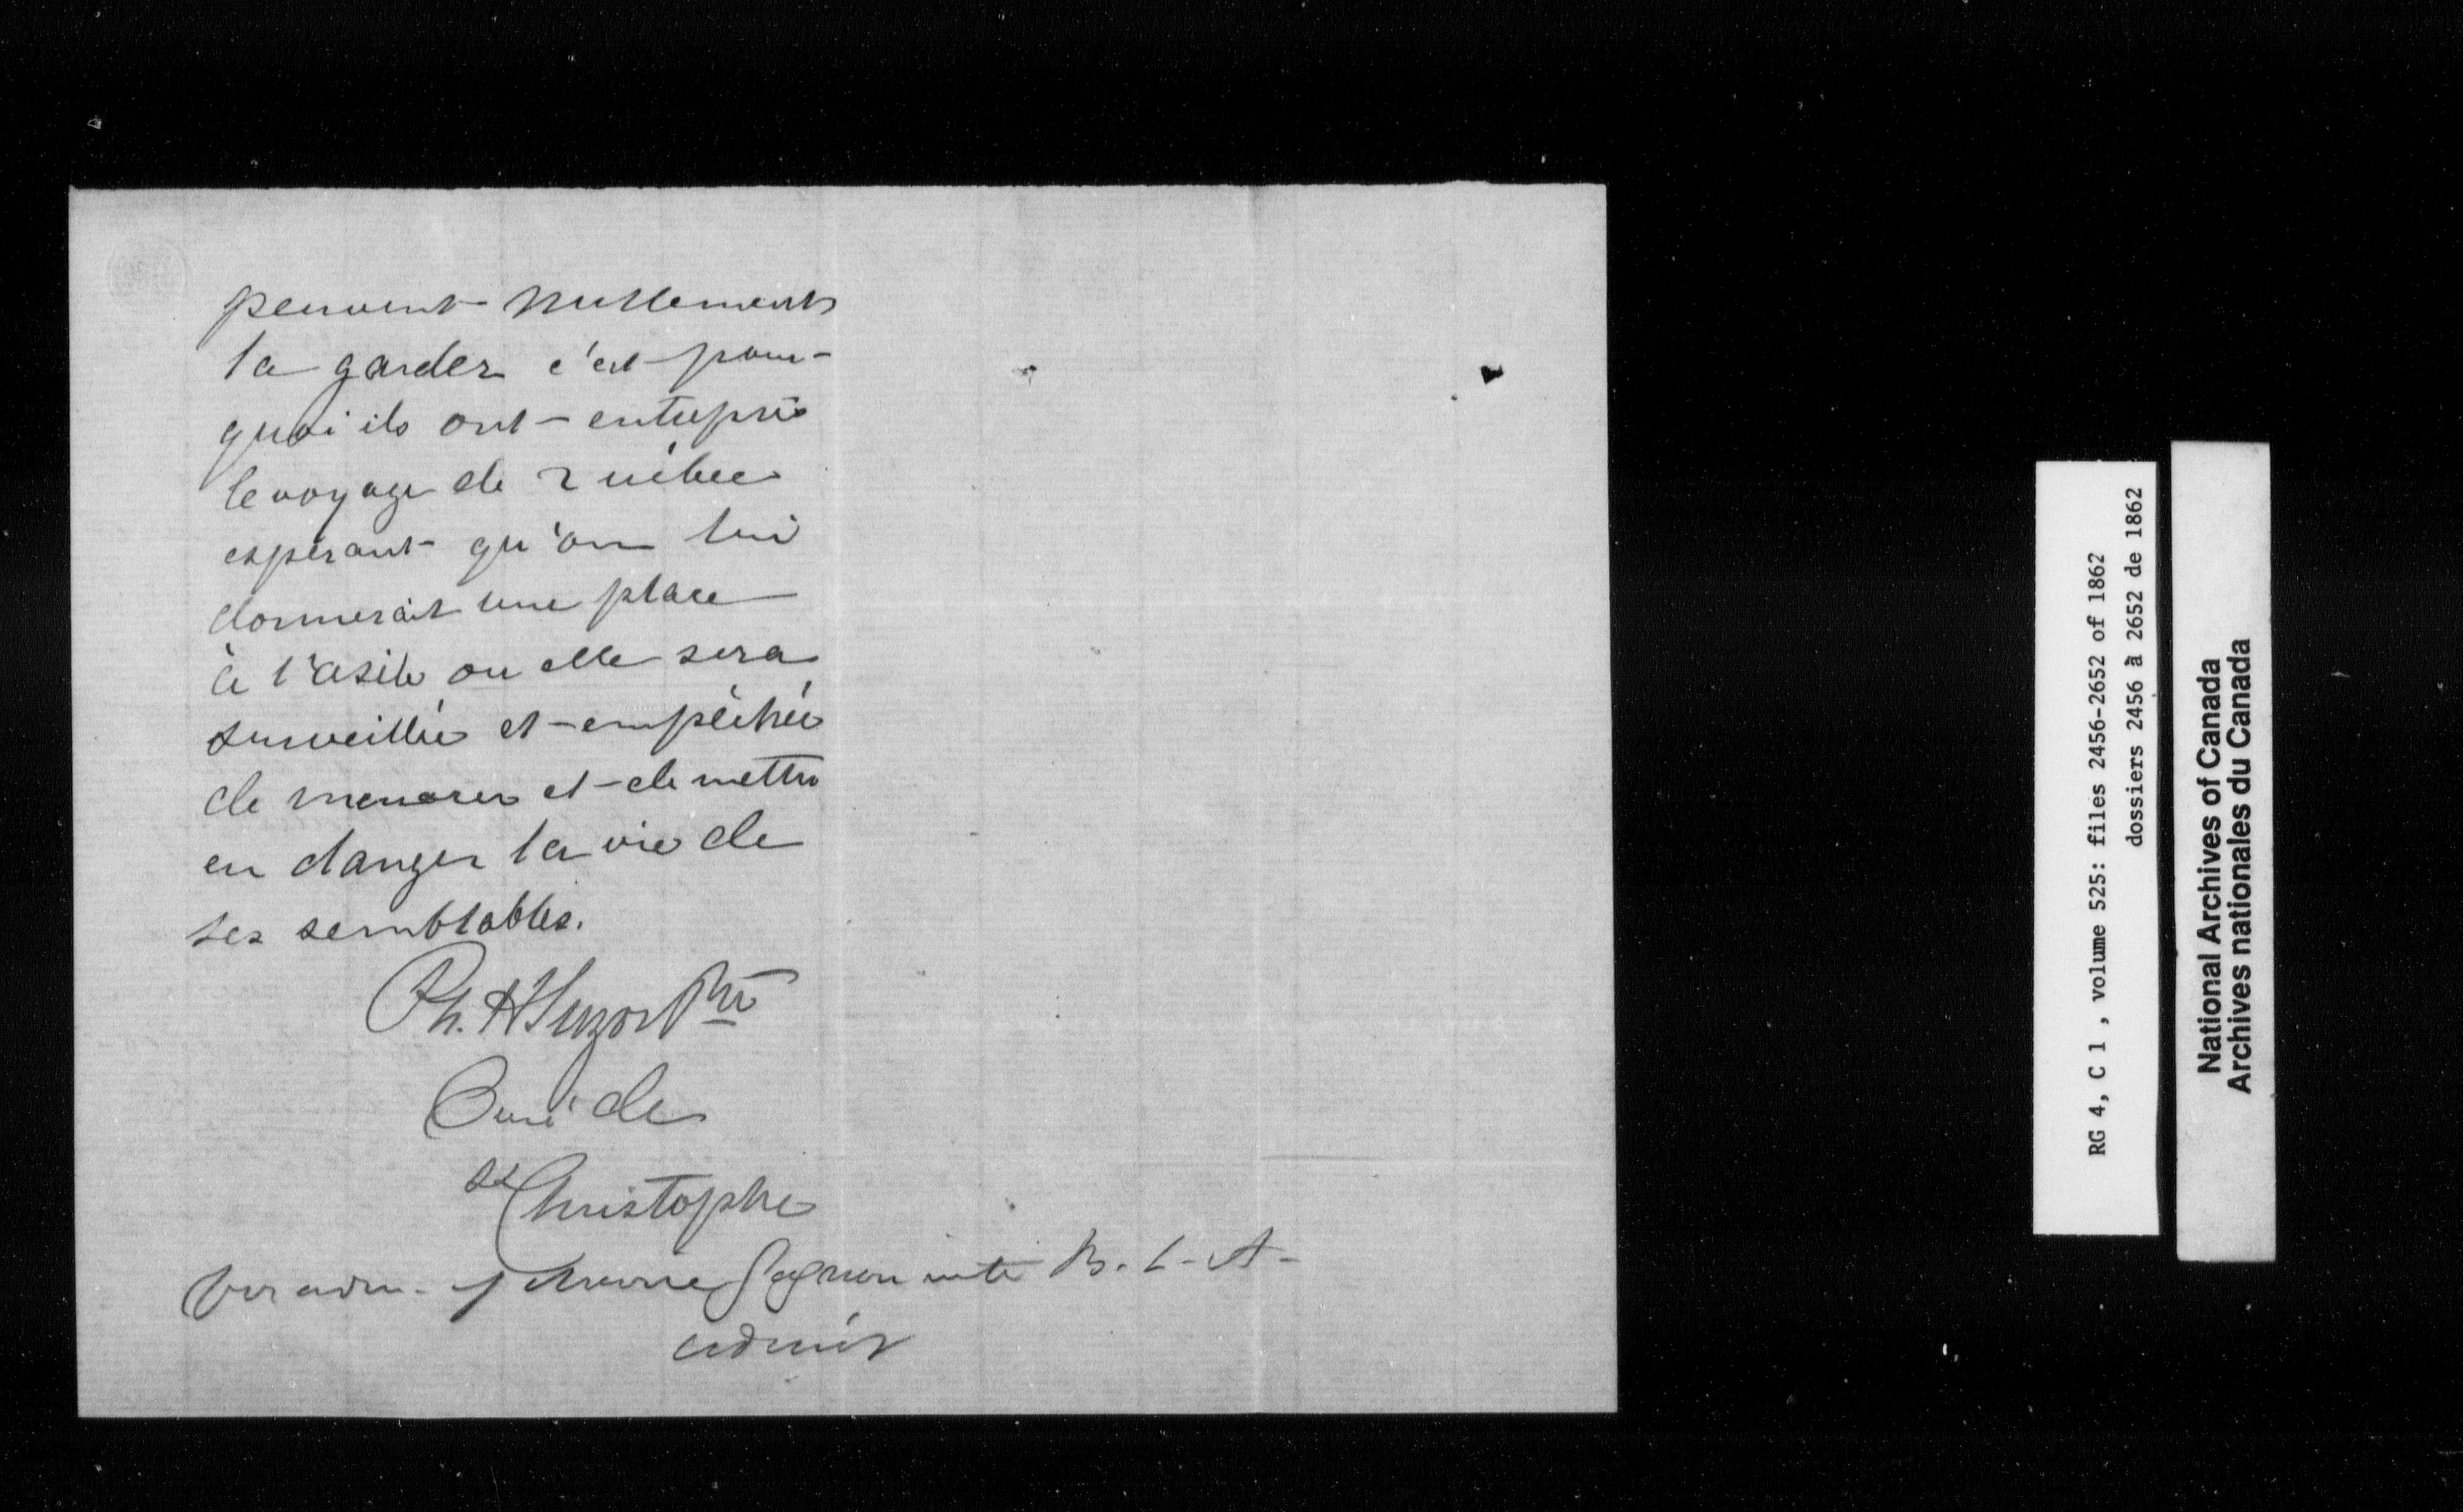 peuvent nullement
la garder c'est pour-
quoi ils ont entrepris
le voyage de Québec
espérant qu'on lui
donnerait une place
à l'asile ou elle sera
surveillée et empêchée
de menacer et de mettre
en danger la vie de
ses semblables.
Ph. H Suzor Ptre
Curé de
St Christophe
for adm. of Gagnon into B. L. A.
RG 4, C 1 , volume 525: files 2456-2652 of 1862
dossiers 2456 à 2652 de 1862
National Archives of Canada
Archives nationales du Canada